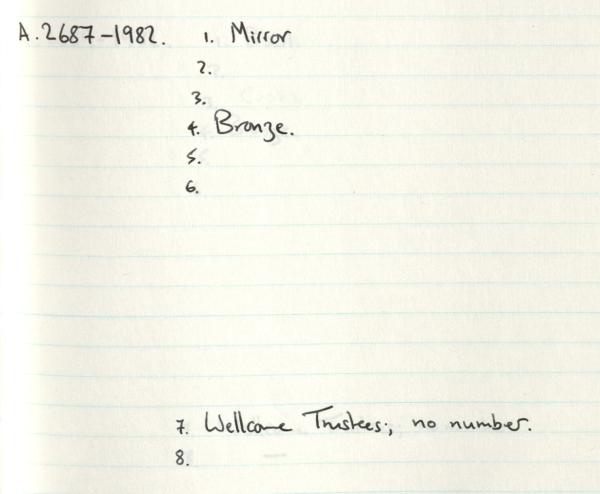 A.2687-1982. 1. Mirror
2.
3.
4. Bronze.
5.
6.
7. Wellcome Trustees; no number.
8.